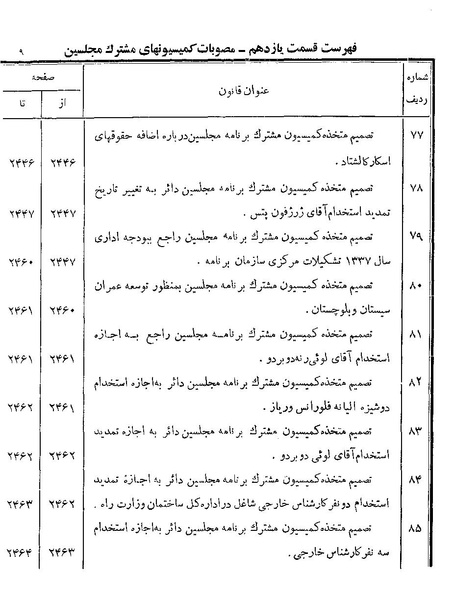 فهرست قسمت یازدهم ـ مصوبات کمیسیونهای مشترك مجلسین
۹
شماره ردیف
عنوان قانون
صفحه
از
تا
۷۷
تصمیم متخذه کمیسیون مشترك برنامه مجلسین درباره اضافه حقوقهای
اسکارکالشتاد .
۲۴۴۶
۲۴۴۶
۷۸
تصمیم متخذه کمیسیون مشترك برنامه مجلسین دائر به تغییر تاریخ
تمدید استخدام آقای ژرژفون پتس .
۲۴۴۷
۲۴۴۷
۷۹
تصمیم متخذه کمیسیون مشترك برنامه مجلسین راجع ببودجه اداری
سال ۱۳۳۷ تشکیلات مرکزی سازمان برنامه .
۲۴۴۷
۲۴۶۰
۸۰
تصمیم متخذه کمیسیون مشترك برنامه مجلسین بمنظور توسعه عمران
سیستان و بلوچستان .
۲۴۶۰
۲۴۶۱
۸۱
تصمیم متخذه کمیسیون مشترك برنامه مجلسین راجع به اجازه
استخدام آقای لوئی رنه دوبردو .
۲۴۶۱
۲۴۶۱
۸۲
تصمیم متخذه کمیسیون مشترك برنامه مجلسین دائر به اجازه استخدام
دوشیزه الیانه فلورانس ورباز .
۲۴۶۱
۲۴۶۲
۸۳
تصمیم متخذه کمیسیون مشترك برنامه مجلسین دائر به اجازه تمدید
استخدام آقای لوئی دوبردو .
۲۴۶۲
۲۴۶۲
۸۴
تصمیم متخذه کمیسیون مشترك برنامه مجلسین دائر به اجازة تمدید
استخدام دو نفر کارشناس خارجی شاغل در اداره کل ساختمان وزارت راه .
۲۴۶۲
۲۴۶۳
۸۵
تصمیم متخذه کمیسیون مشترك برنامه مجلسین دائر به اجازه استخدام
سه نفر کارشناس خارجی .
۲۴۶۳
۲۴۶۴